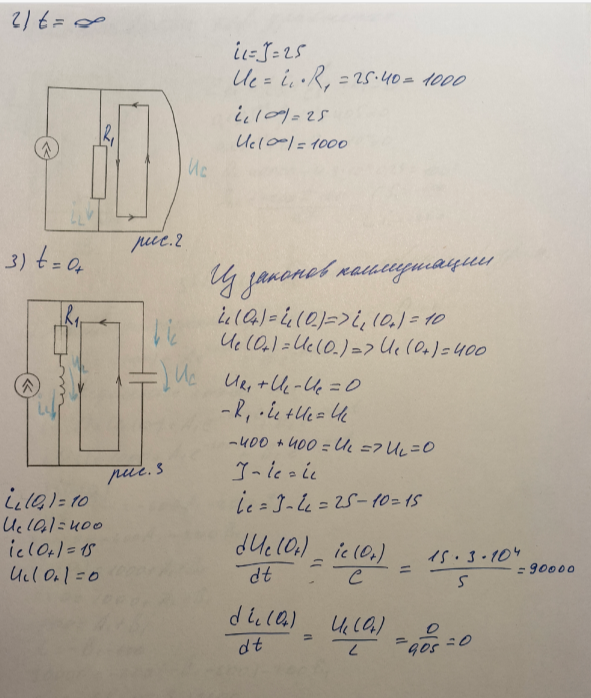 2) t = ∞
i_L = J = 25
U_C = i_L · R₁ = 25·40 = 1000
i_L(∞) = 25
U_C(∞) = 1000
R₁
U_C
i_L
рис.2
3) t = 0₊
Из законов коммутации
i_L(0₊) = i_L(0₋) => i_L(0₊) = 10
U_C(0₊) = U_C(0₋) => U_C(0₊) = 400
R₁
i_C
U_L
U_C
i_L
рис.3
U_R₁ + U_L - U_C = 0
-R₁ · i_L + U_C = U_L
-400 + 400 = U_L => U_L = 0
J - i_C = i_L
i_C = J - i_L = 25 - 10 = 15
i_L(0₊) = 10
U_C(0₊) = 400
i_C(0₊) = 15
U_L(0₊) = 0
dU_C(0₊)/dt = i_C(0₊)/C = 15 · 3 · 10⁴/5 = 90000
di_L(0₊)/dt = U_L(0₊)/L = 0/0,05 = 0